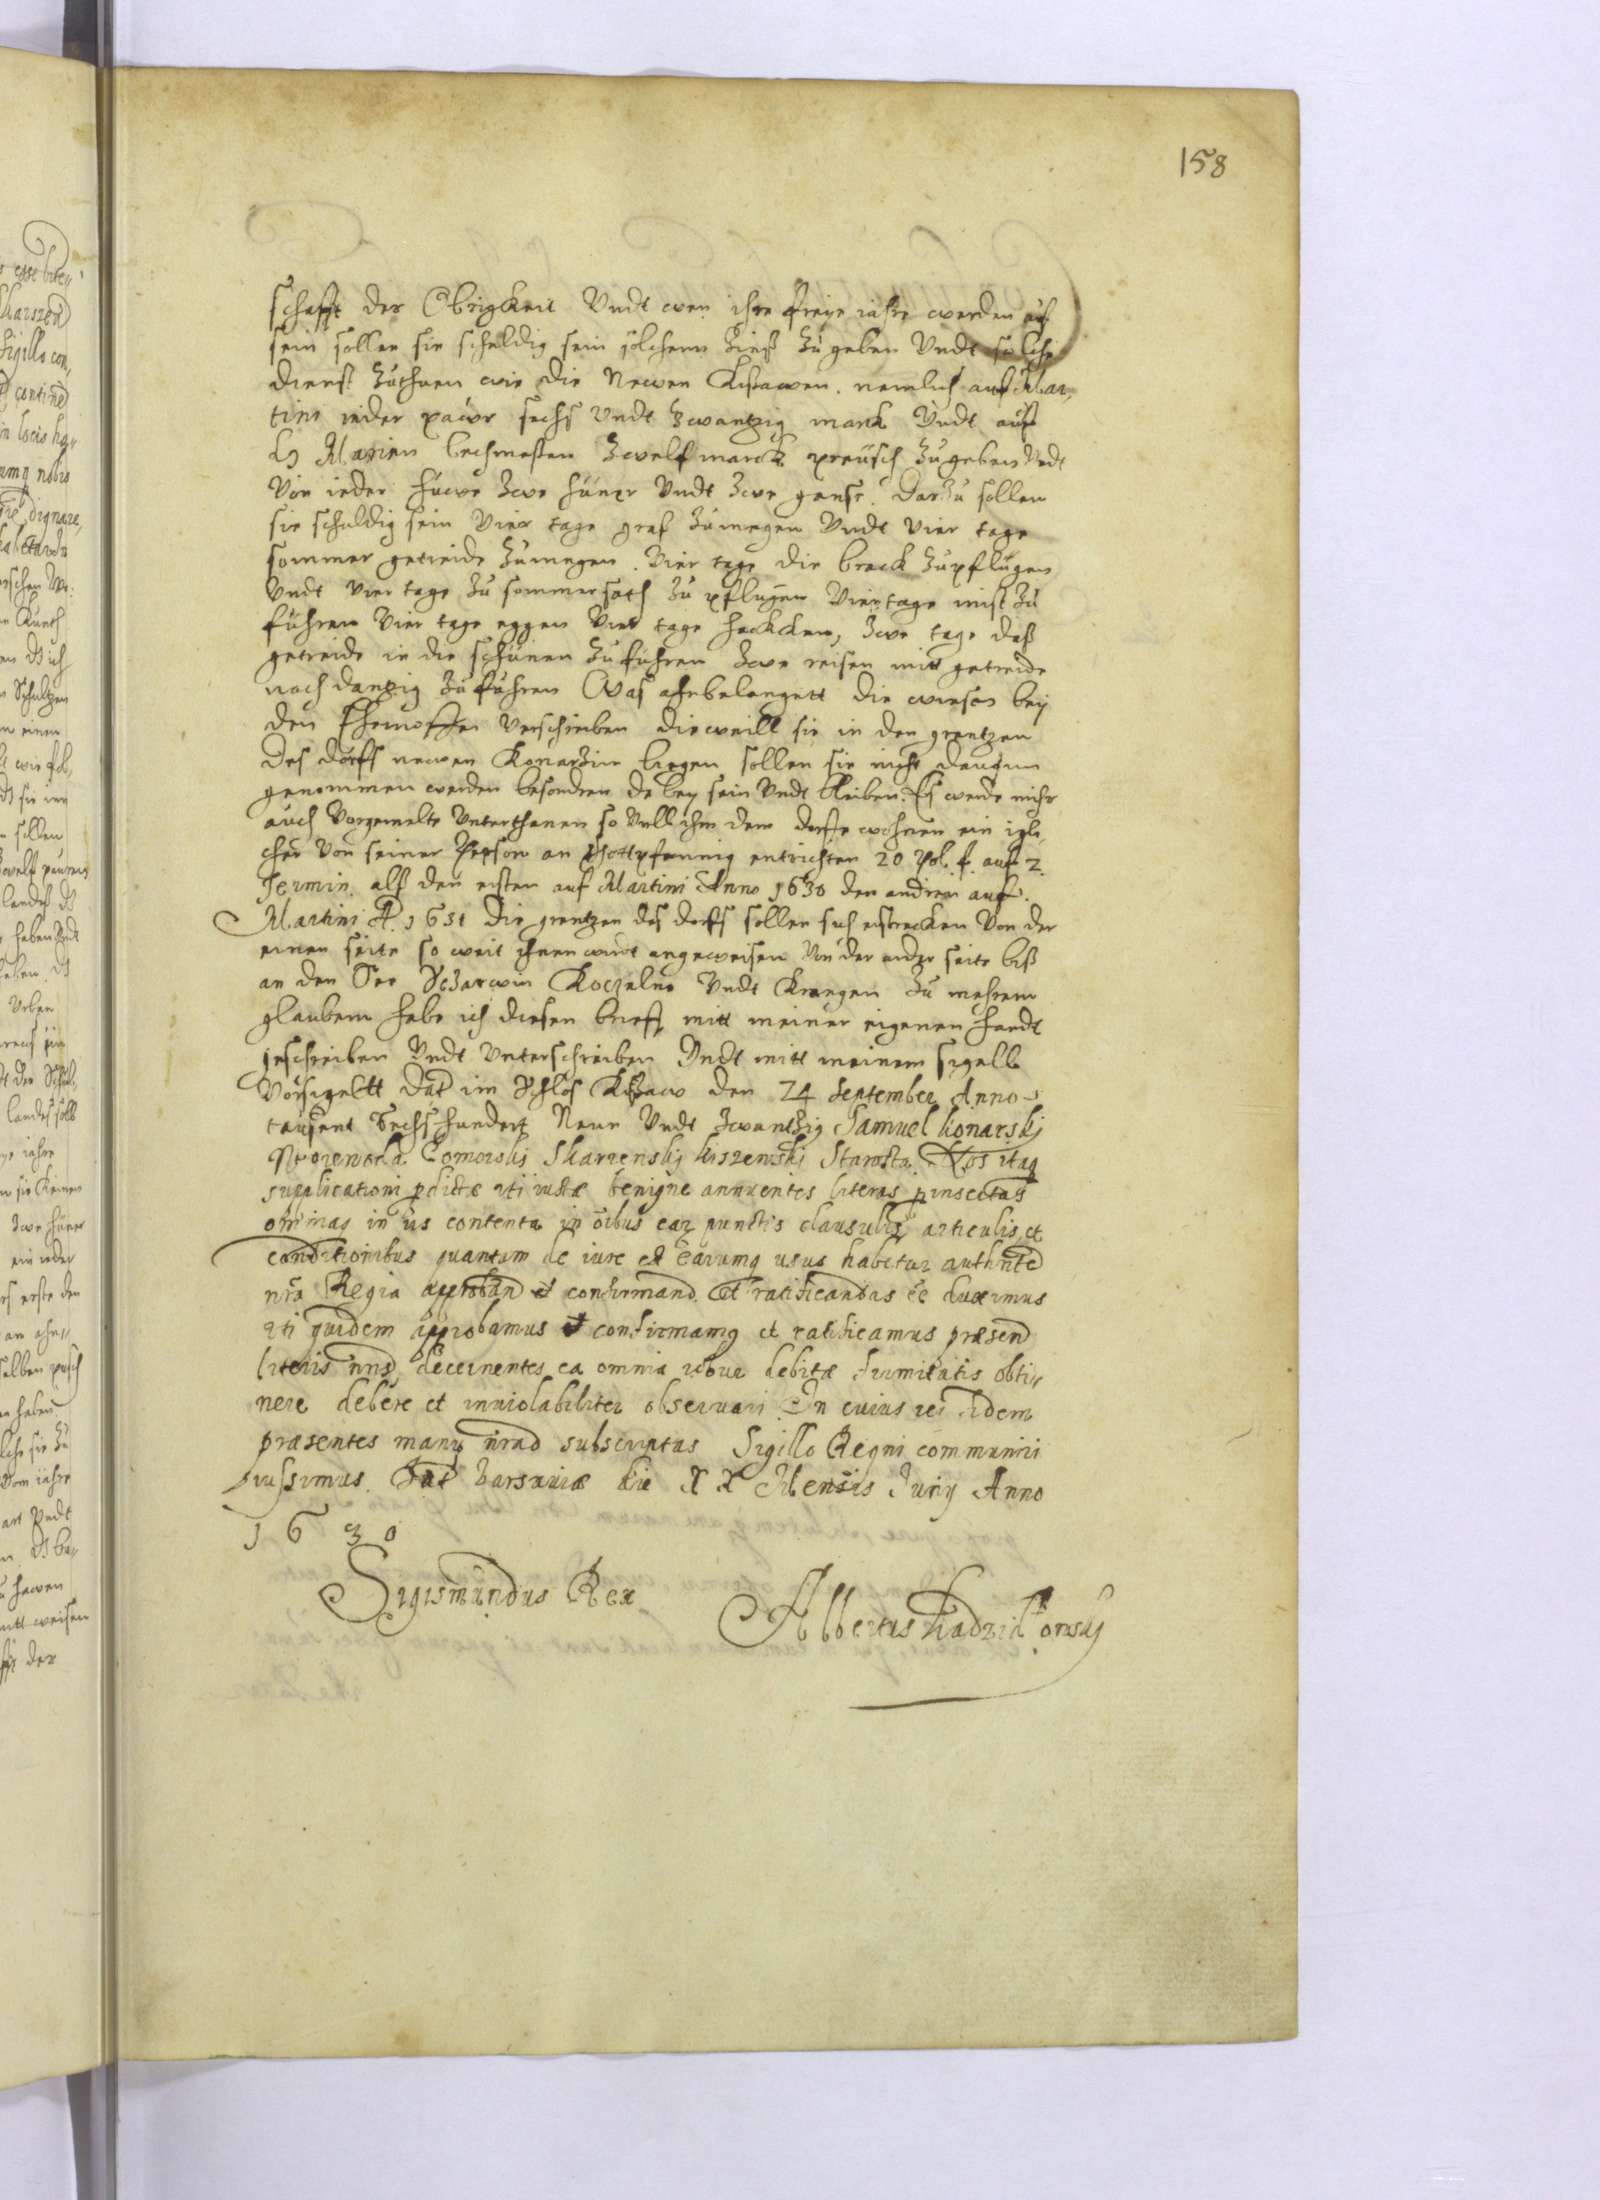 158
schafft der Obrigkeit Undt wen ihre freye iahre werden auß
sein sollen sie schuldig sein solchenn Zinß Zu geben Undt solche
dienst Zuthuen wie die Newen Kißawen. nemlich auf Mar„
tini ieder pawr sechs Undt Zwantzig marck Undt auf
Marien lechmessen Zwelf marck preusch Zu geben Undt
Von ieder huewe Zwe hüner Undt Zwe gense. Darzu sollen
sie schuldig sein Vier tage graß Zumegen Undt Vier tage
sommer getreide Zumegen. Vier tage die brack Zupflugen
Undt Vier tage Zu sommersath Zu pflugen Vier tage mist Zu
fuhren Vier tage eggen Vier tage hackken, Zwe tage daß
getreide in die schunen Zu fuhren Zwe reisen mitt getreide
nach dantzig Zu fuhren Was ahnbelangett die wiesen bey
den Verschrieben dieweill sie in den grentzen
des dorfs newen Konarzin liegen sollen sie nicht davonn
genommen werden besondren da bey sein Undt bleiben. Es werde mihr
auch Vorgemelte Unterthanen so Vill ihn dem dorffe wohnen ein igli„
cher Von seiner Person an Gottpfennig entrichten 20 Pol. f. auf 2.
Termin. alß den ersten auf Martini Anno 1630 den andren auf
Martini A. 1631 die grentzen des dorfs sollen sich erstrecken Von der
einen seite so weit ihnen wirdt angeweisen Von der ander seite biß
an den See Koczelno Undt Krangen Zu mehrem
glauben habe ich diesen brieff mitt meiner eigenen handt
geschrieben Undt Unterschrieben Undt mitt meinem sigell
Vorsigeltt Dat im Schlos Kißaw den 24 September Anno
tausent Sechs hundert Neun Undt Zwantzig Samuel Konarskj
Woiewoda Pomorskj Skarzenskj Kiszewskj Starosta Nos itaq
supplicationi pdictæ uti iustæ benigne annuentes literas pinsertas
omnias in iis contenta in oibus ear punctis clausulis articulis et
conditionibus quantum de iure est earumq usus habetur authnte
nra Regia approband et confirmand et ratificandas ee duximus
uti quidem approbamus et confirmamq et ratificamus præsend
literis nris decernentes ea omnia robur debitæ firmitatis obti„
nere debere et inviolabiliter observari In cuius rei fidem
præsentes manu nrad subscriptas Sigillo Regni communiri
iussimus. Dat Varsaviæ die XX Mensis Junij Anno
1630
Sigismundus Rex
Albertus Kadzidlowskj